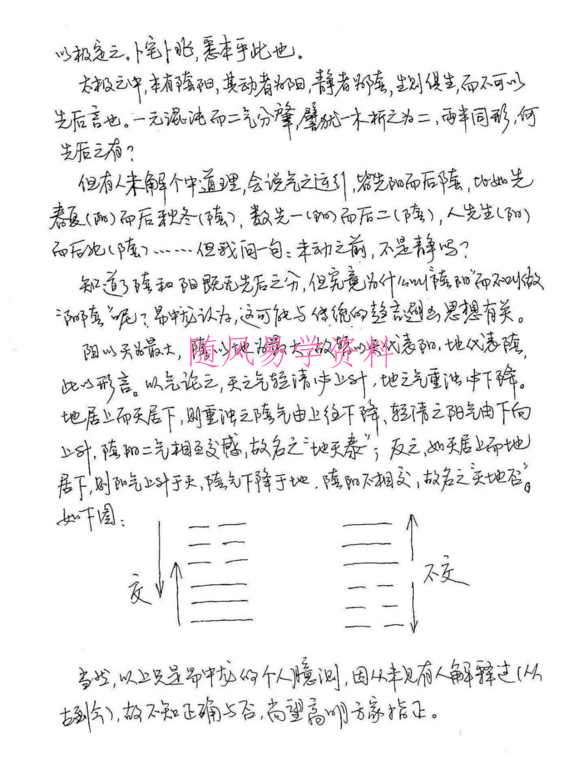 以极定之。卜宅卜兆，悉本乎此也。
太极之中，本有阴阳，其动者为阳，静者为阴，生则俱生，而不可以
先后言也。一元混沌而二气分肇，譬犹一木析之为二，两半同形，何
先后之有？
但有人未解个中道理，会说气之运行，皆先阳而后阴，比如先
春夏(阳)而后秋冬(阴)，数先一(阳)而后二(阴)，人先生(阳)
而后死(阴)……但我问一句：未动之前，不是静吗？
知道了阴和阳既无先后之分，但究竟为什么叫"阴阳"而不叫做
"阳阴"呢？吊中龙认为，这可能与传统的趋吉避凶思想有关。
阳以天为最大，阴以地为最大，故常以天代表阳，地代表阴，
此以形言。以气论之，天之气轻清中上升，地之气重浊中下降。
地居上而天居下，则重浊之阴气由上往下降，轻清之阳气由下向
上升，阴阳二气相互交感，故名之"地天泰"；反之，如天居上而地
居下，则阳气上升于天，阴气下降于地，阴阳不相交，故名之"天地否"。
如下图：
交
不交
当然，以上只是吊中龙的个人臆测，因从未见有人解释过(从
古到今)，故不知正确与否，尚望高明方家指正。
随风易学资料